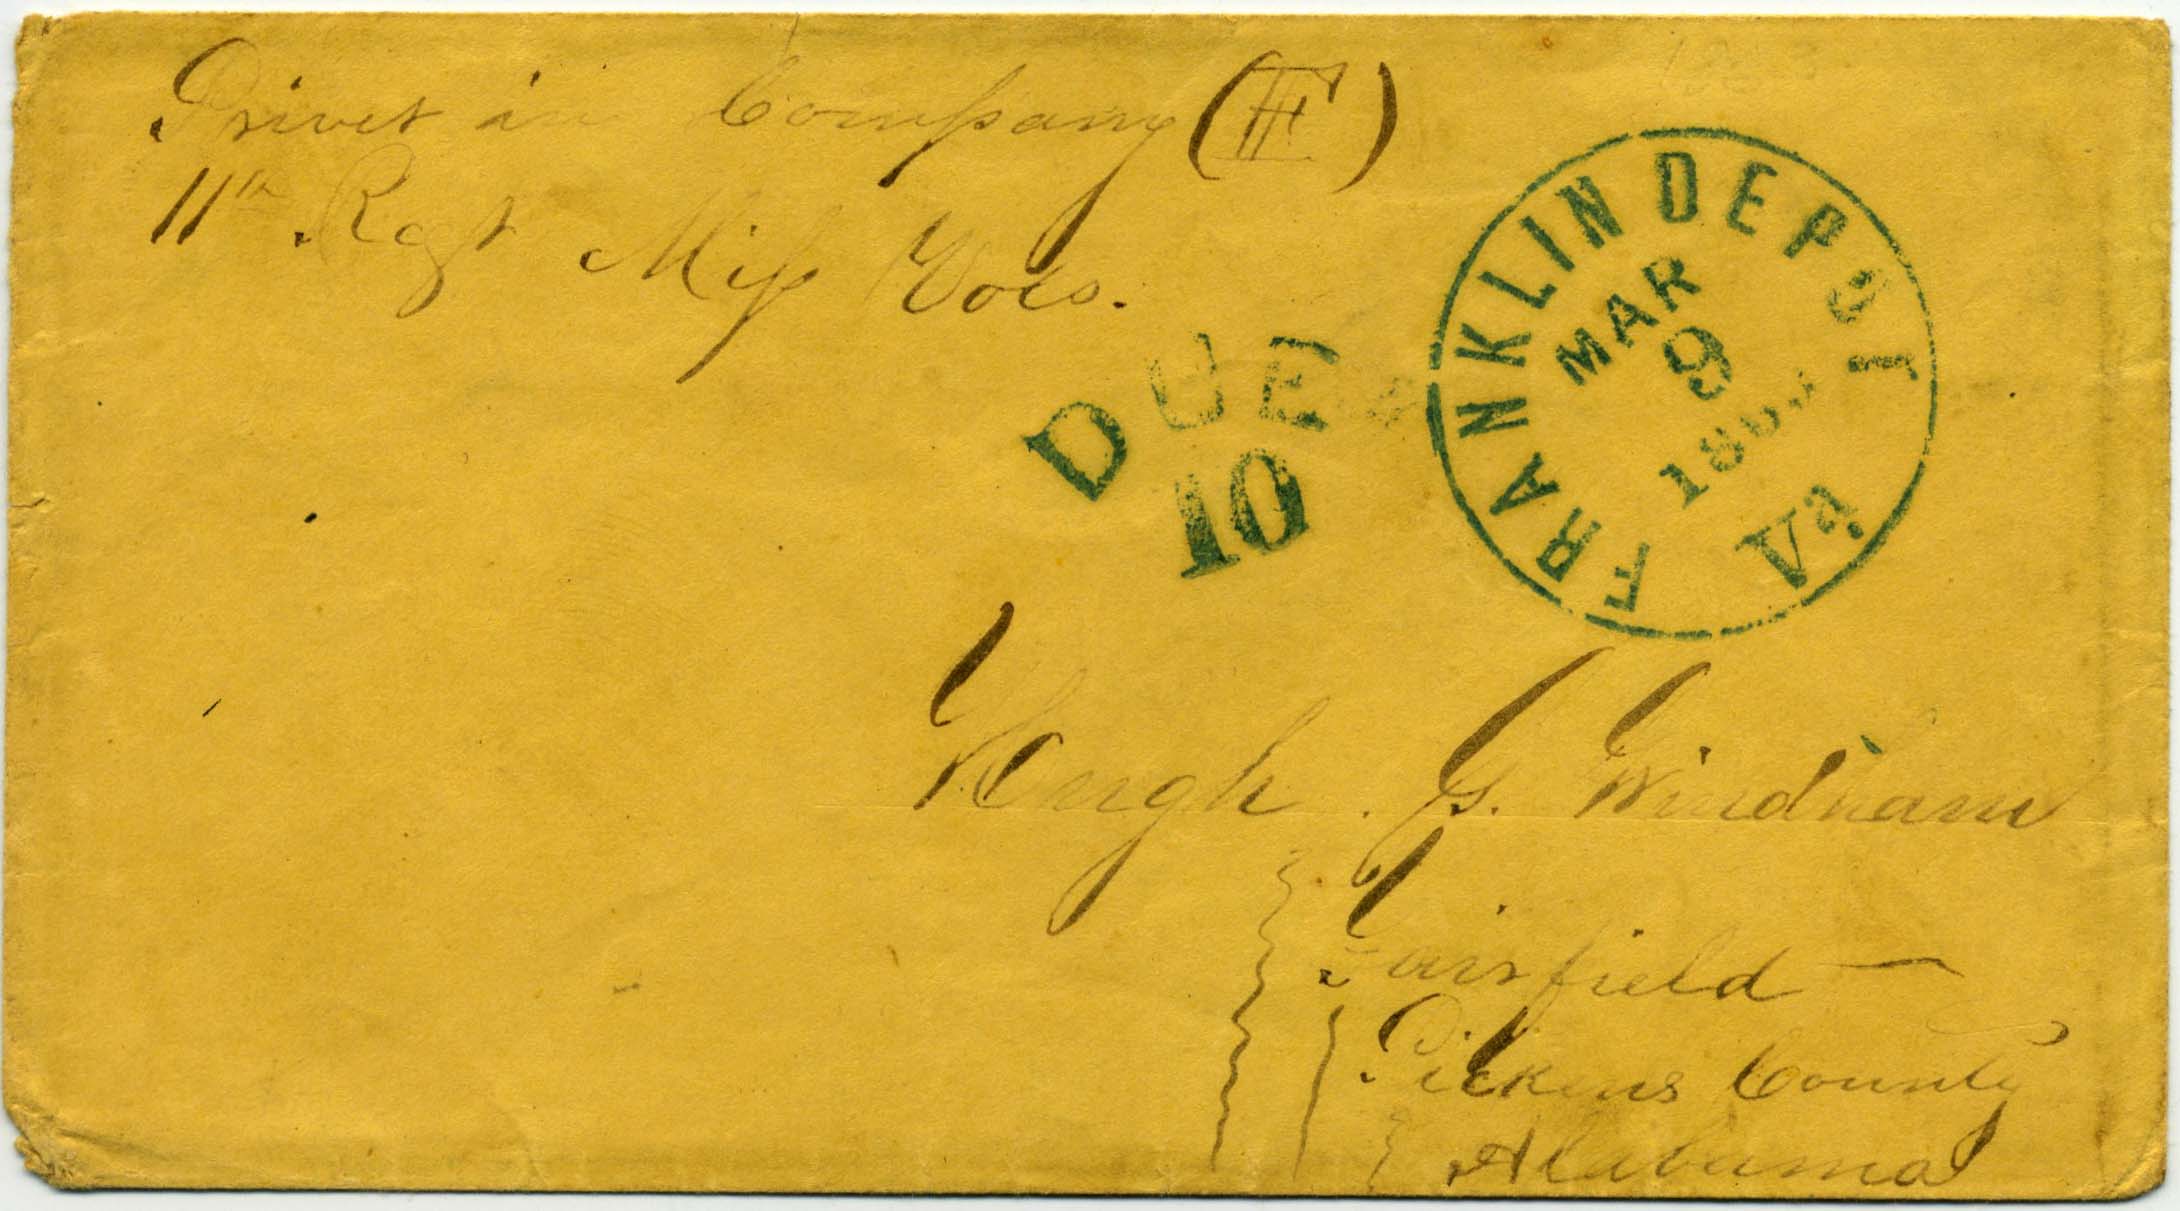 Privet in Company (F)
11th Regt Miss Vols.
FRANKLIN DEPOT
MAR
9
1863
Va
DUE
10
Hugh. G. Windham
Fairfield
Pickens County
Alabama